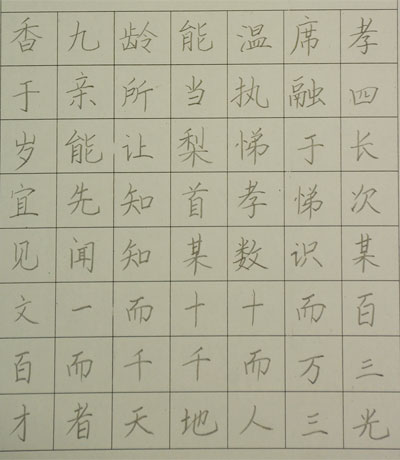 香九龄能温席孝
于亲所当执融四
岁能让梨悌于长
宜先知首孝悌次
见闻知某数识某
文一而十十而百
百而千千而万三
才者天地人三光